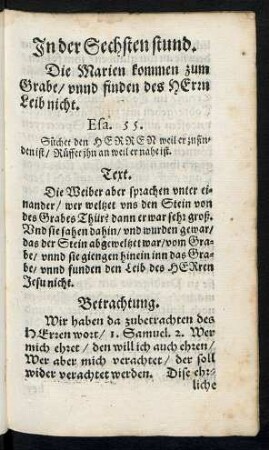 In der Sechsten stund.
Die Marien kommen zum
Grabe/ vnnd finden des HErrn
Leib nicht.
Esa. 55.
Süchet den HERREN weil er zufin-
den ist/ Rüffet jhn an weil er nahe ist.
Text.
Die Weiber aber sprachen vnter ei-
nander/ wer weltzet vns den Stein von
des Grabes Thür? dann er war sehr groß.
Vnd sie sahen dahin/ vnd wurden gewar/
das der Stein abgeweltzet war/ vom Gra-
be/ vnnd sie giengen hinein inn das Gra-
be/ vnnd funden den Leib des HERren
Jesu nicht.
Betrachtung.
Wir haben da zubetrachten des
HErren wort/ 1. Samuel. 2. Wer
mich ehret/ den will ich auch ehren/
Wer aber mich verachtet/ der soll
wider verachtet werden. Dise ehr-
liche